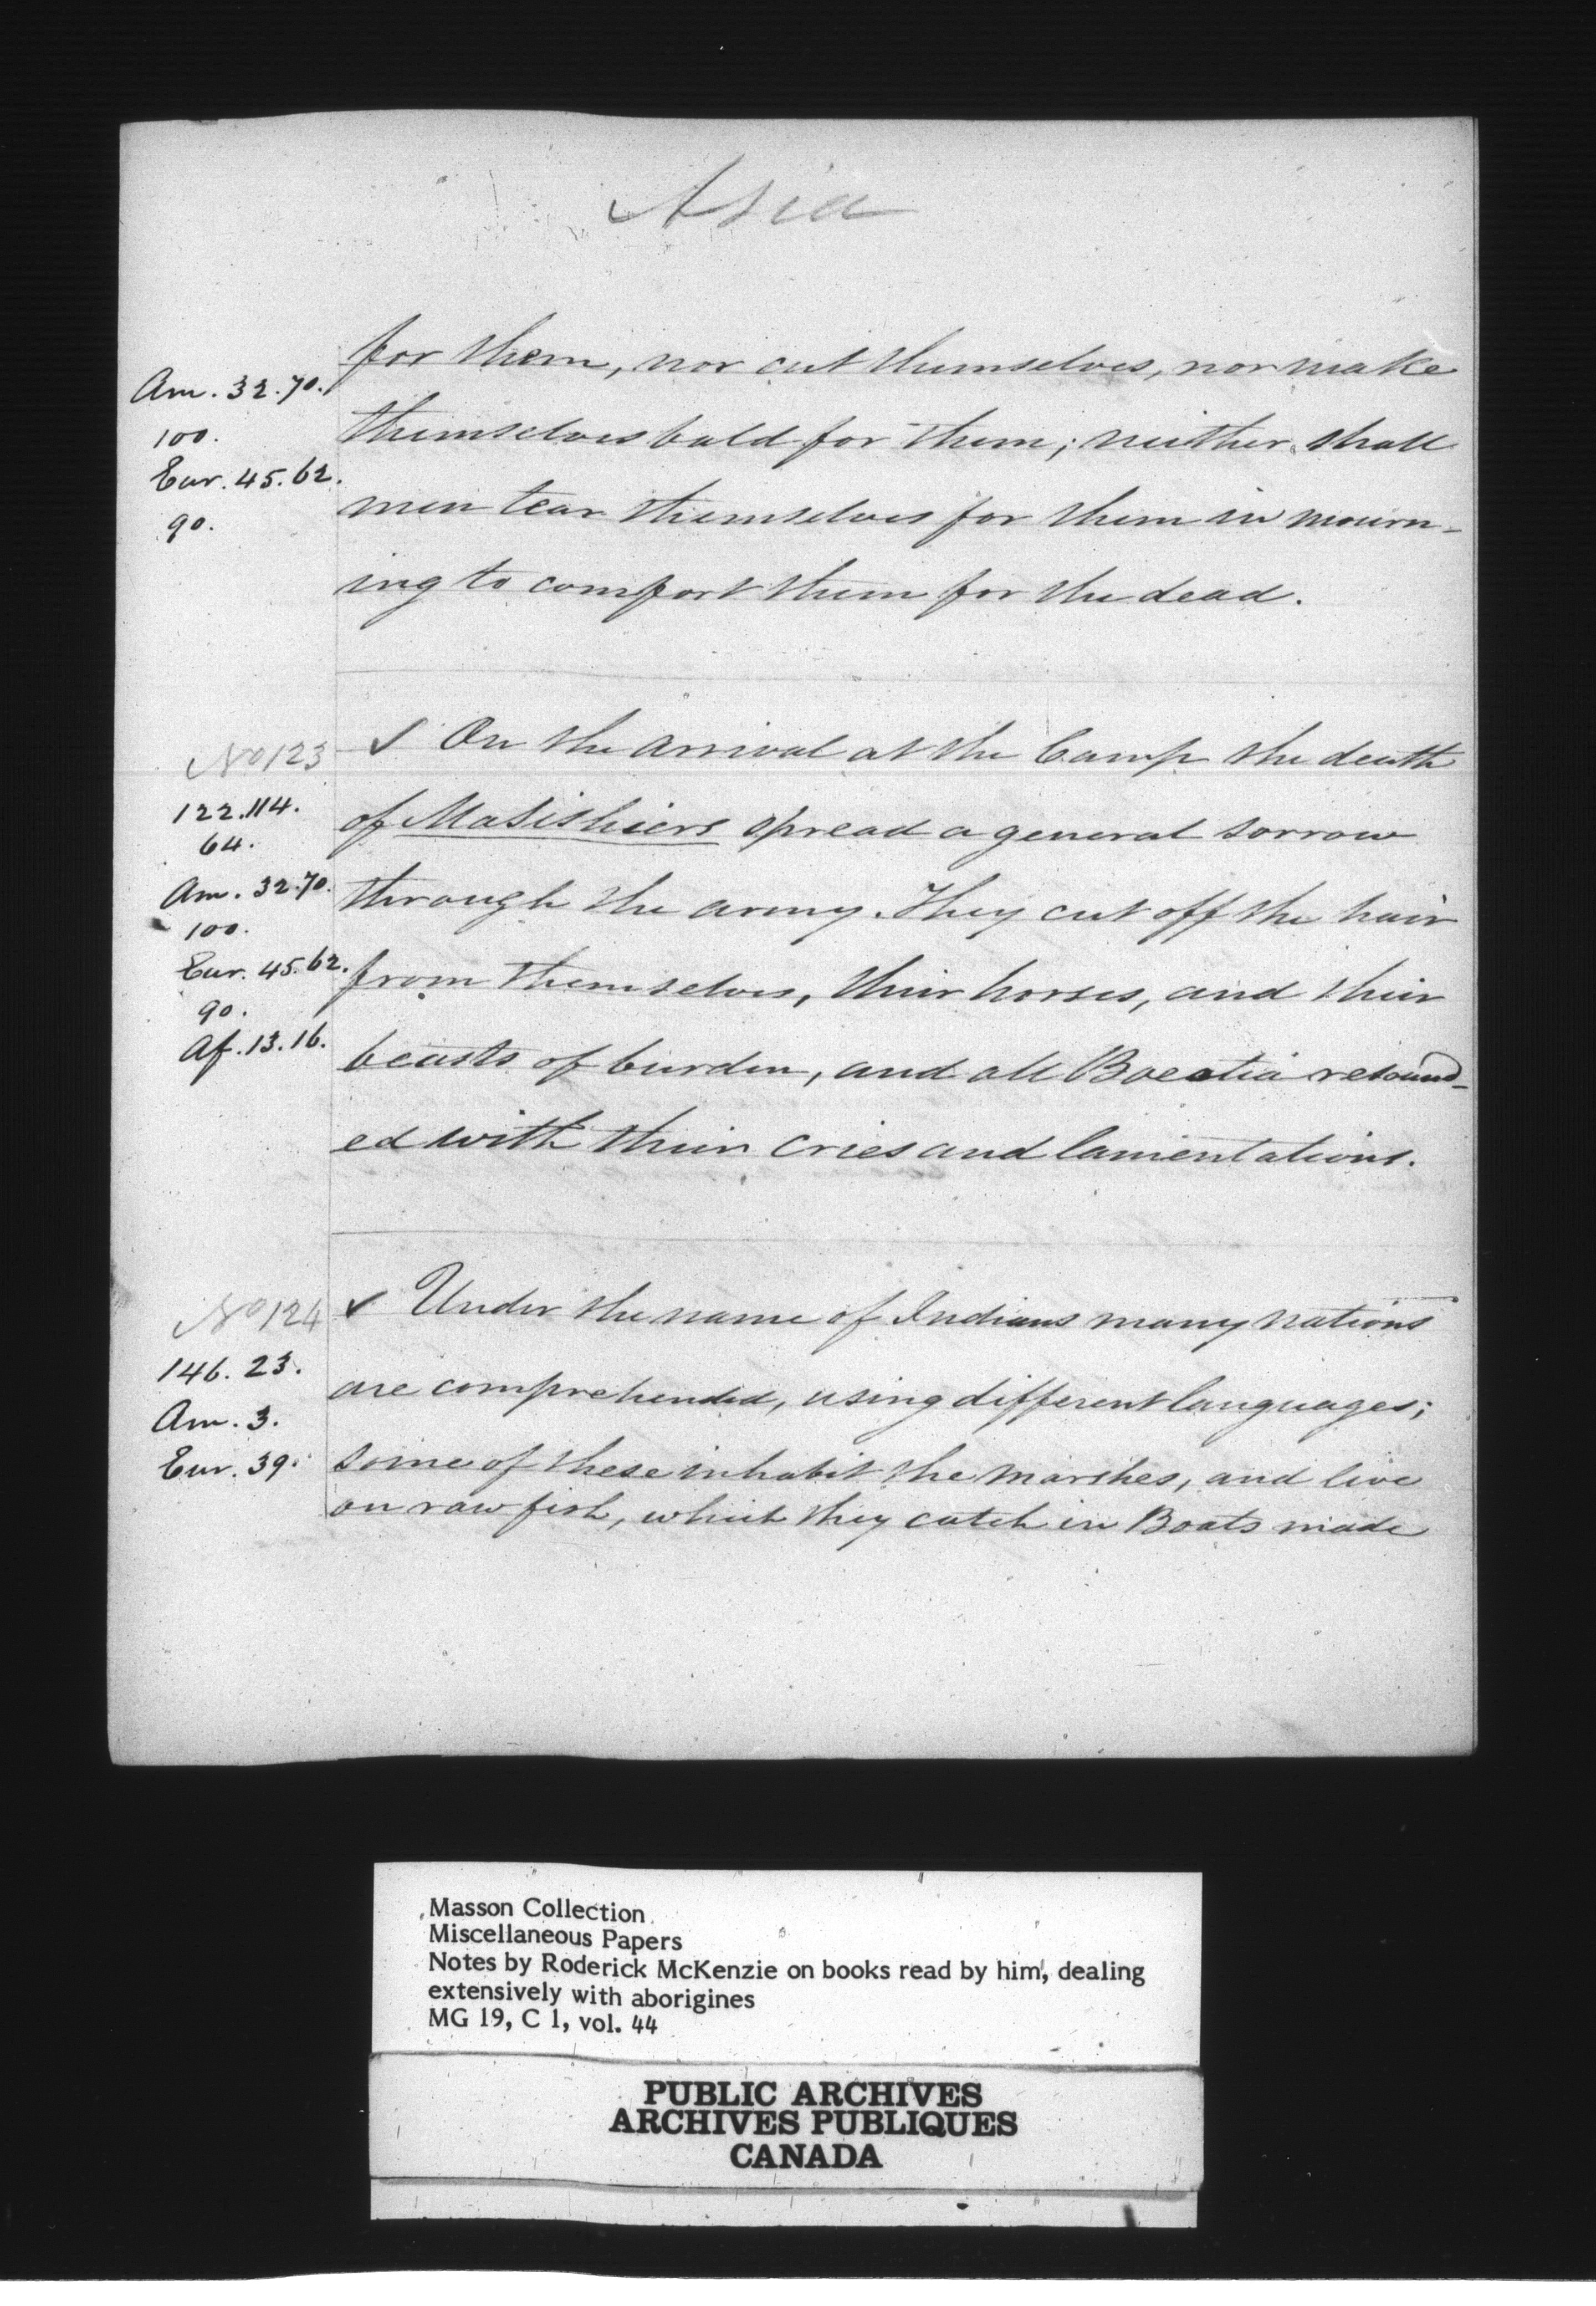 Asia
for them, nor cut themselves, nor make
Am. 32. 70.
themselves bald for them; neither shall
100.
Eur. 45. 62.
men tear themselves for them in mourn-
90.
ing to comfort them for the dead.
No 123
✓ On the arrival at the Camp the death
122. 114.
64.
of Masishiers spread a general sorrow
Am. 32. 70.
through the army. They cut off the hair
100.
Eur. 45. 62.
from themselves, their horses, and their
90.
Af. 13. 16.
beasts of burden, and all Boeotia resound-
ed with their cries and lamentations.
No 124
✓ Under the name of Indians many nations
146. 23.
are comprehended, using different languages;
Am. 3.
Eur. 39.
some of these inhabit the marshes, and live
on raw fish, which they catch in Boats made
Masson Collection
Miscellaneous Papers
Notes by Roderick McKenzie on books read by him, dealing
extensively with aborigines
MG 19, C 1, vol. 44
PUBLIC ARCHIVES
ARCHIVES PUBLIQUES
CANADA